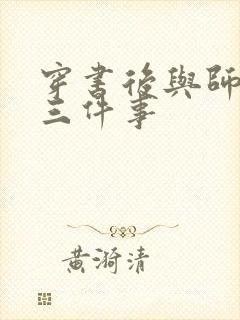 穿書後與師
三件事
黃漪清